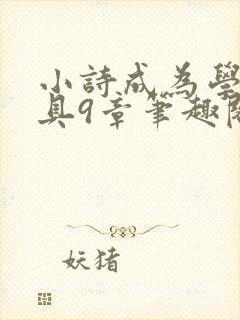 小詩成為學
具9章筆趣閱
妖猪